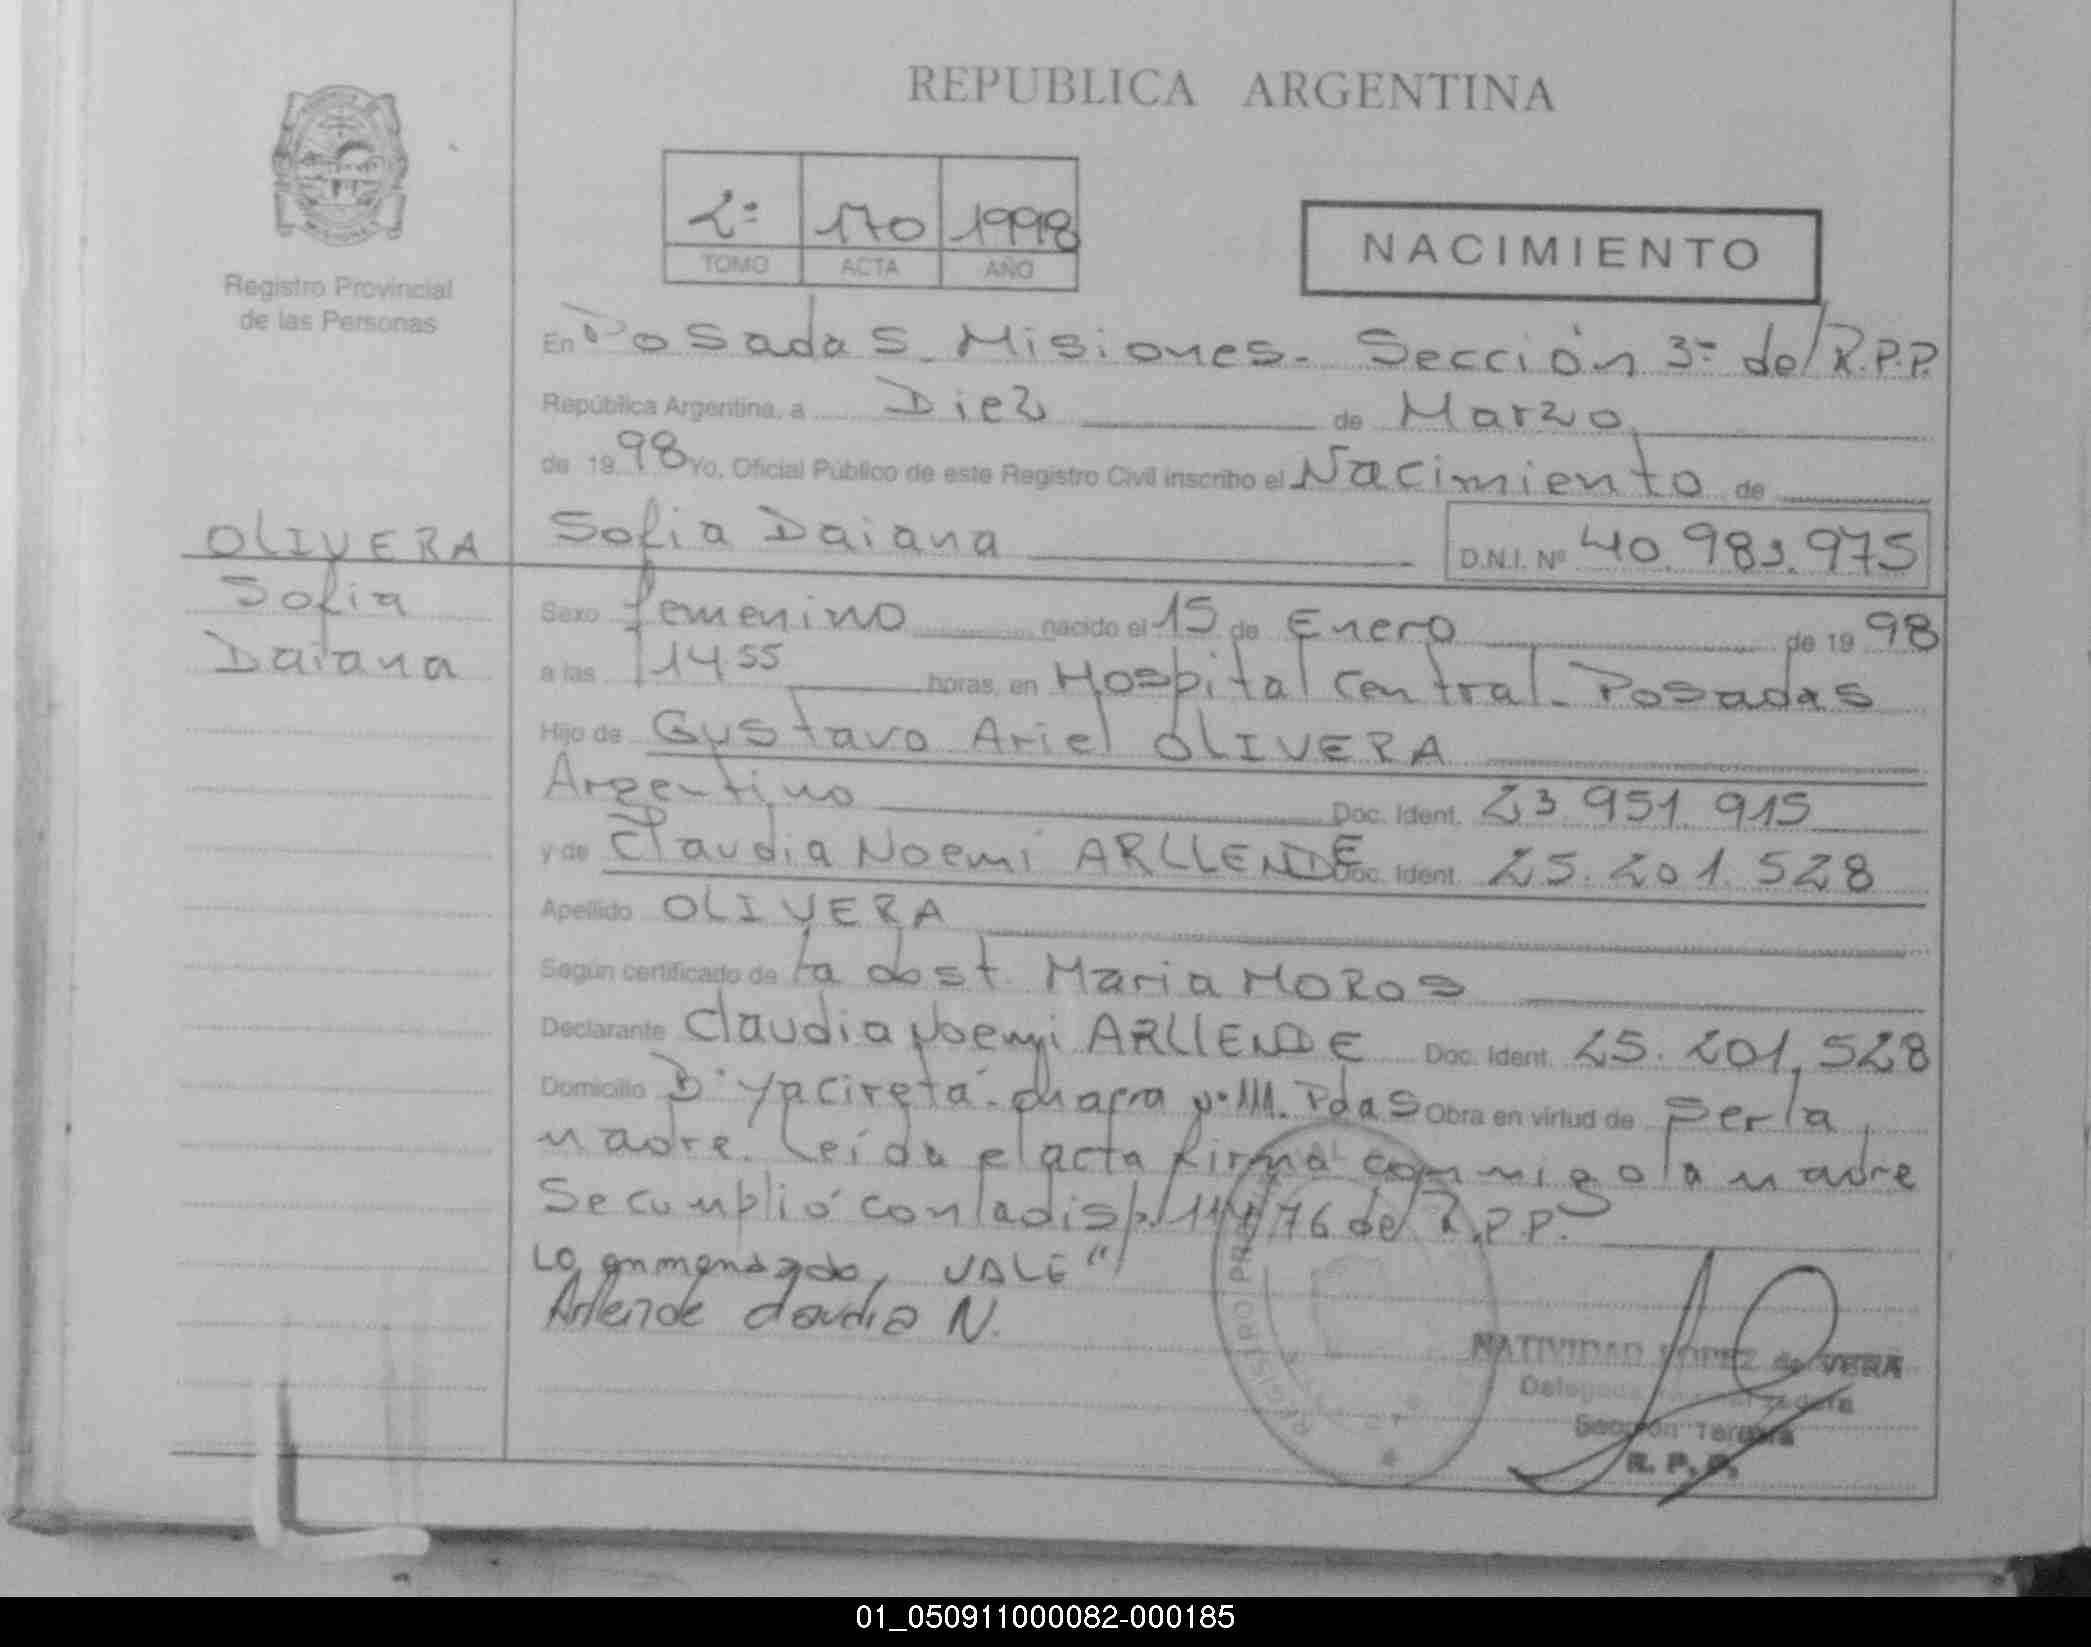 REPUBLICA ARGENTINA
Registro Provincial
de las Personas
2º 170 1998
TOMO ACTA AÑO
NACIMIENTO
En Posadas - Misiones - Sección 3º del R.P.P.
República Argentina, a Diez de Marzo
de 19 98 Yo, Oficial Público de este Registro Civil inscribo el Nacimiento de
OLIVERA Sofia Daiana D.N.I. Nº 40.983.975
Sofia
Daiana
Sexo femenino nacido el 15 de Enero de 19 98
a las 14.55 horas, en Hospital Central - Posadas
Hijo de Gustavo Ariel OLIVERA
Argentino Doc. Ident. 23.951.915
y de Claudia Noemi ARLLENDE Doc. Ident. 25.201.528
Apellido OLIVERA
Según certificado de la obst. Maria MOROS
Declarante Claudia Noemi ARLLENDE Doc. Ident. 25.201.528
Domicilio Bº Yacireta - chacra Nº 111. Pdas Obra en virtud de ser la
madre. Leida el acta firma conmigo la madre
Se cumplió con la disp. /76 del R.P.P.
Lo enmendado, VALE"
Arllende Claudia N.
NATIVIDAD LOPEZ de VERA
Delegada
Sección Tercera
R. P. P.
01_050911000082-000185